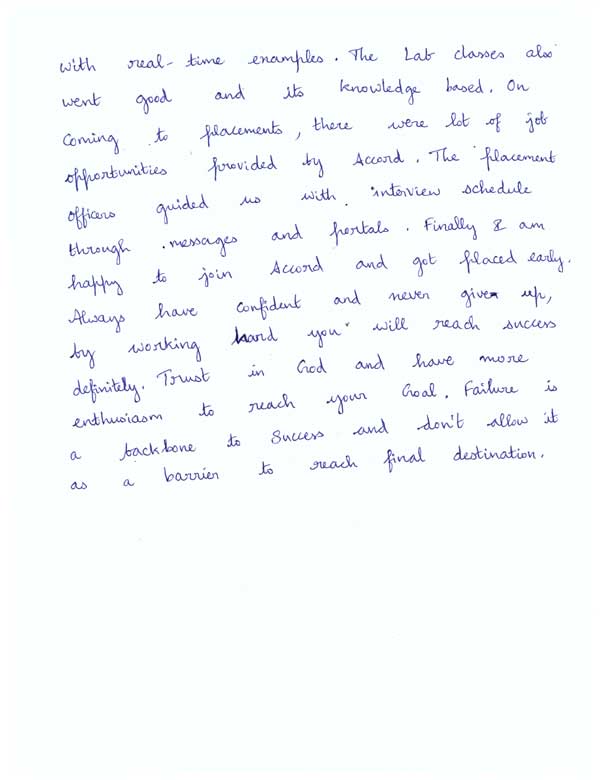 with real-time examples. The Lab classes also
went good and its knowledge based. On
Coming to placements, there were lot of job
opportunities provided by Accord. The placement
officers guided us with interview schedule
through messages and portals. Finally I am
happy to join Accord and got placed early.
Always have confident and never give up,
by working hard you will reach success
definitely. Trust in God and have more
enthusiasm to reach your Goal. Failure is
a backbone to Success and don't allow it
as a barrier to reach final destination.